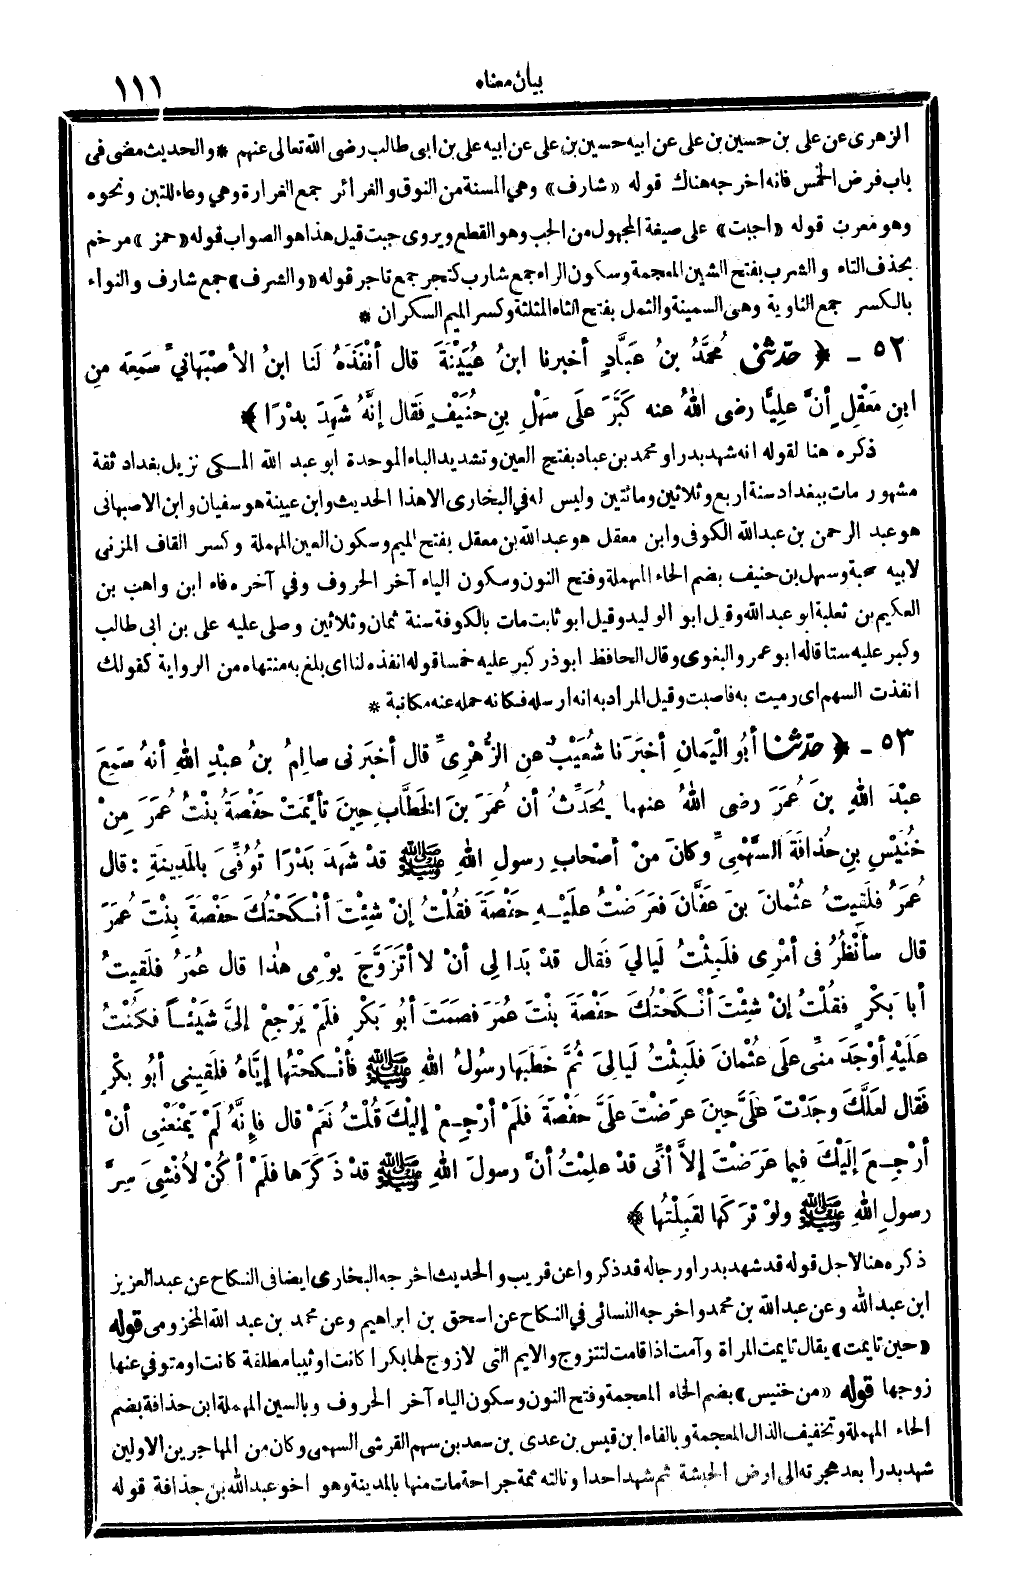 بيان معناه
١١١
الزهرى عن على بن حسين بن على عن ابيه حسين بن على عن ابيه على بن ابى طالب رضى الله تعالى عنهم * والحديث مضى فى
باب فرض الخمس فانه اخرجه هناك قوله «شارف» وهي المسنة من النوق والغرائر جمع الغرارة وهي وعاء للتبن ونحوه
وهو معرب قوله «اجبت» على صيغة المجهول من الجب وهو القطع ويروى جبت قيل هذا هو الصواب قوله «حمز» مرخم
بحذف التاء والشرب بفتح الشين المعجمة وسكون الراء جمع شارب كتجر جمع تاجر قوله «والشرف» جمع شارف والنواء
بالكسر جمع الناوية وهى السمينة والثمل بفتح الثاء المثلثة وكسر الميم السكران *
٥٢ ـ ﴿ حدّثنى مُحَمَّدُ بنُ عَبَّادٍ أخبرنا ابنُ عُيَيْنَةَ قال أنْفَذَهُ لَنا ابنُ الأصْبَهانيِّ سَمِعَه مِنِ
ابنِ مَعْقِلٍ أنَّ علِيًّا رضى اللهُ عنه كَبَّرَ علَى سَهْلِ بنِ حُنَيْفٍ فقال إنَّهُ شَهِدَ بدْرًا ﴾
ذكره هنا لقوله انه شهد بدرا ومحمد بن عباد بفتح العين وتشديد الباء الموحدة ابو عبد الله المكى نزيل بغداد ثقة
مشهور مات ببغداد سنة اربع وثلاثين ومائتين وليس له في البخارى الا هذا الحديث وابن عيينة هو سفيان وابن الاصبهانى
هو عبد الرحمن بن عبد الله الكوفى وابن معقل هو عبد الله بن معقل بفتح الميم وسكون العين المهملة وكسر القاف المزنى
لابيه صحبة وسهل بن حنيف بضم الحاء المهملة وفتح النون وسكون الياء آخر الحروف وفي آخره فاء ابن واهب بن
العكيم بن ثعلبة ابو عبد الله وقيل ابو الوليد وقيل ابو ثابت مات بالكوفة سنة ثمان وثلاثين وصلى عليه على بن ابى طالب
وكبر عليه ستا قاله ابو عمر والبغوى وقال الحافظ ابو ذر كبر عليه خمسا قوله انفذه لنا اى بلغ به منتهاه من الرواية كقولك
انفذت السهم اى رميت به فاصبت وقيل المراد به انه ارسله فكانه حمله عنه مكاتبة *
٥٣ ـ ﴿ حدّثنا أبُو الْيَمانِ أخبَرَنا شُعَيْبٌ عنِ الزُّهْرِىِّ قال أخبَرَنى سالِمُ بنُ عبْدِ اللهِ أنهُ سَمِعَ
عبْدَ اللهِ بنَ عُمَرَ رضى اللهُ عنهما يُحَدِّثُ أن عُمَرَ بنَ الخَطَّابِ حِينَ تأيَّمَتْ حَفْصَةُ بنْتُ عُمَرَ مِنْ
خُنَيْسِ بنِ حُذافَةَ السَّهْمِىِّ وكانَ مِنْ أصْحابِ رسولِ اللهِ ﷺ قدْ شَهِدَ بَدْرًا تُوُفِّىَ بالمَدِينَةِ : قال
عُمَرُ فلَقِيتُ عُثْمانَ بنَ عَفَّانَ فعَرَضْتُ علَيْهِ حفْصَةَ فقُلْتُ إنْ شِئْتَ أنْكَحْتُكَ حفْصَةَ بِنْتَ عُمَرَ
قال سأنْظُرُ فى أمْرِى فلَبِثْتُ لَيالِيَ فقال قدْ بَدا لِى أنْ لا أتَزَوَّجَ يوْمِى هٰذا قال عُمَرُ فلَقِيتُ
أبا بَكْرٍ فقُلْتُ إنْ شِئْتَ أنْكَحْتُكَ حفْصَةَ بنْتَ عُمَرَ فصَمَتَ أبُو بَكْرٍ فلَمْ يَرْجِعْ إلىَّ شَيْئاً فكُنْتُ
علَيْهِ أوْجَدَ منِّى علَى عُثْمانَ فلَبِثْتُ لَيالِىَ ثُمَّ خطَبَها رسُولُ اللهِ ﷺ فأنْكحْتُها إيَّاهُ فلَقِينِى أبُو بكْرٍ
فقال لعَلَّكَ وجَدْتَ علَىَّ حِينَ عرَضْتَ علَىَّ حفْصَةَ فلَمْ أرْجِعْ إلَيْكَ قُلْتُ نعَمْ قال فإنَّهُ لَمْ يَمْنَعْنِى أنْ
أرْجِعَ إلَيْكَ فِيما عَرَضْتَ إلاَّ أنِّى قدْ علِمْتُ أنَّ رسولَ اللهِ ﷺ قدْ ذَكَرَها فلَمْ أكُنْ لأُفْشِىَ سِرَّ
رسولِ اللهِ ﷺ ولوْ ترَكَها لقَبِلْتُها ﴾ *
ذكره هنا لاجل قوله قد شهد بدرا ورجاله قد ذكروا عن قريب والحديث اخرجه البخارى ايضا فى النكاح عن عبد العزيز
ابن عبد الله وعن عبد الله بن محمد واخرجه النسائى في النكاح عن اسحق بن ابراهيم وعن محمد بن عبد الله المخزومى قوله
«حين تايمت» يقال تايمت المراة وآمت اذا قامت لتتزوج والايم التى لا زوج لها بكرا كانت او ثيبا مطلقة كانت او متوفي عنها
زوجها قوله «من خنيس» بضم الخاء المعجمة وفتح النون وسكون الياء آخر الحروف وبالسين المهملة ابن حذافة بضم
الحاء المهملة وتخفيف الذال المعجمة وبالفاء ابن قيس بن عدى بن سعد بن سهم القرشى السهمى وكان من المهاجرين الاولين
شهد بدرا بعد هجرته الى ارض الحبشة ثم شهد احدا ونالته ثمة جراحة مات منها بالمدينة وهو اخو عبد الله بن حذافة قوله